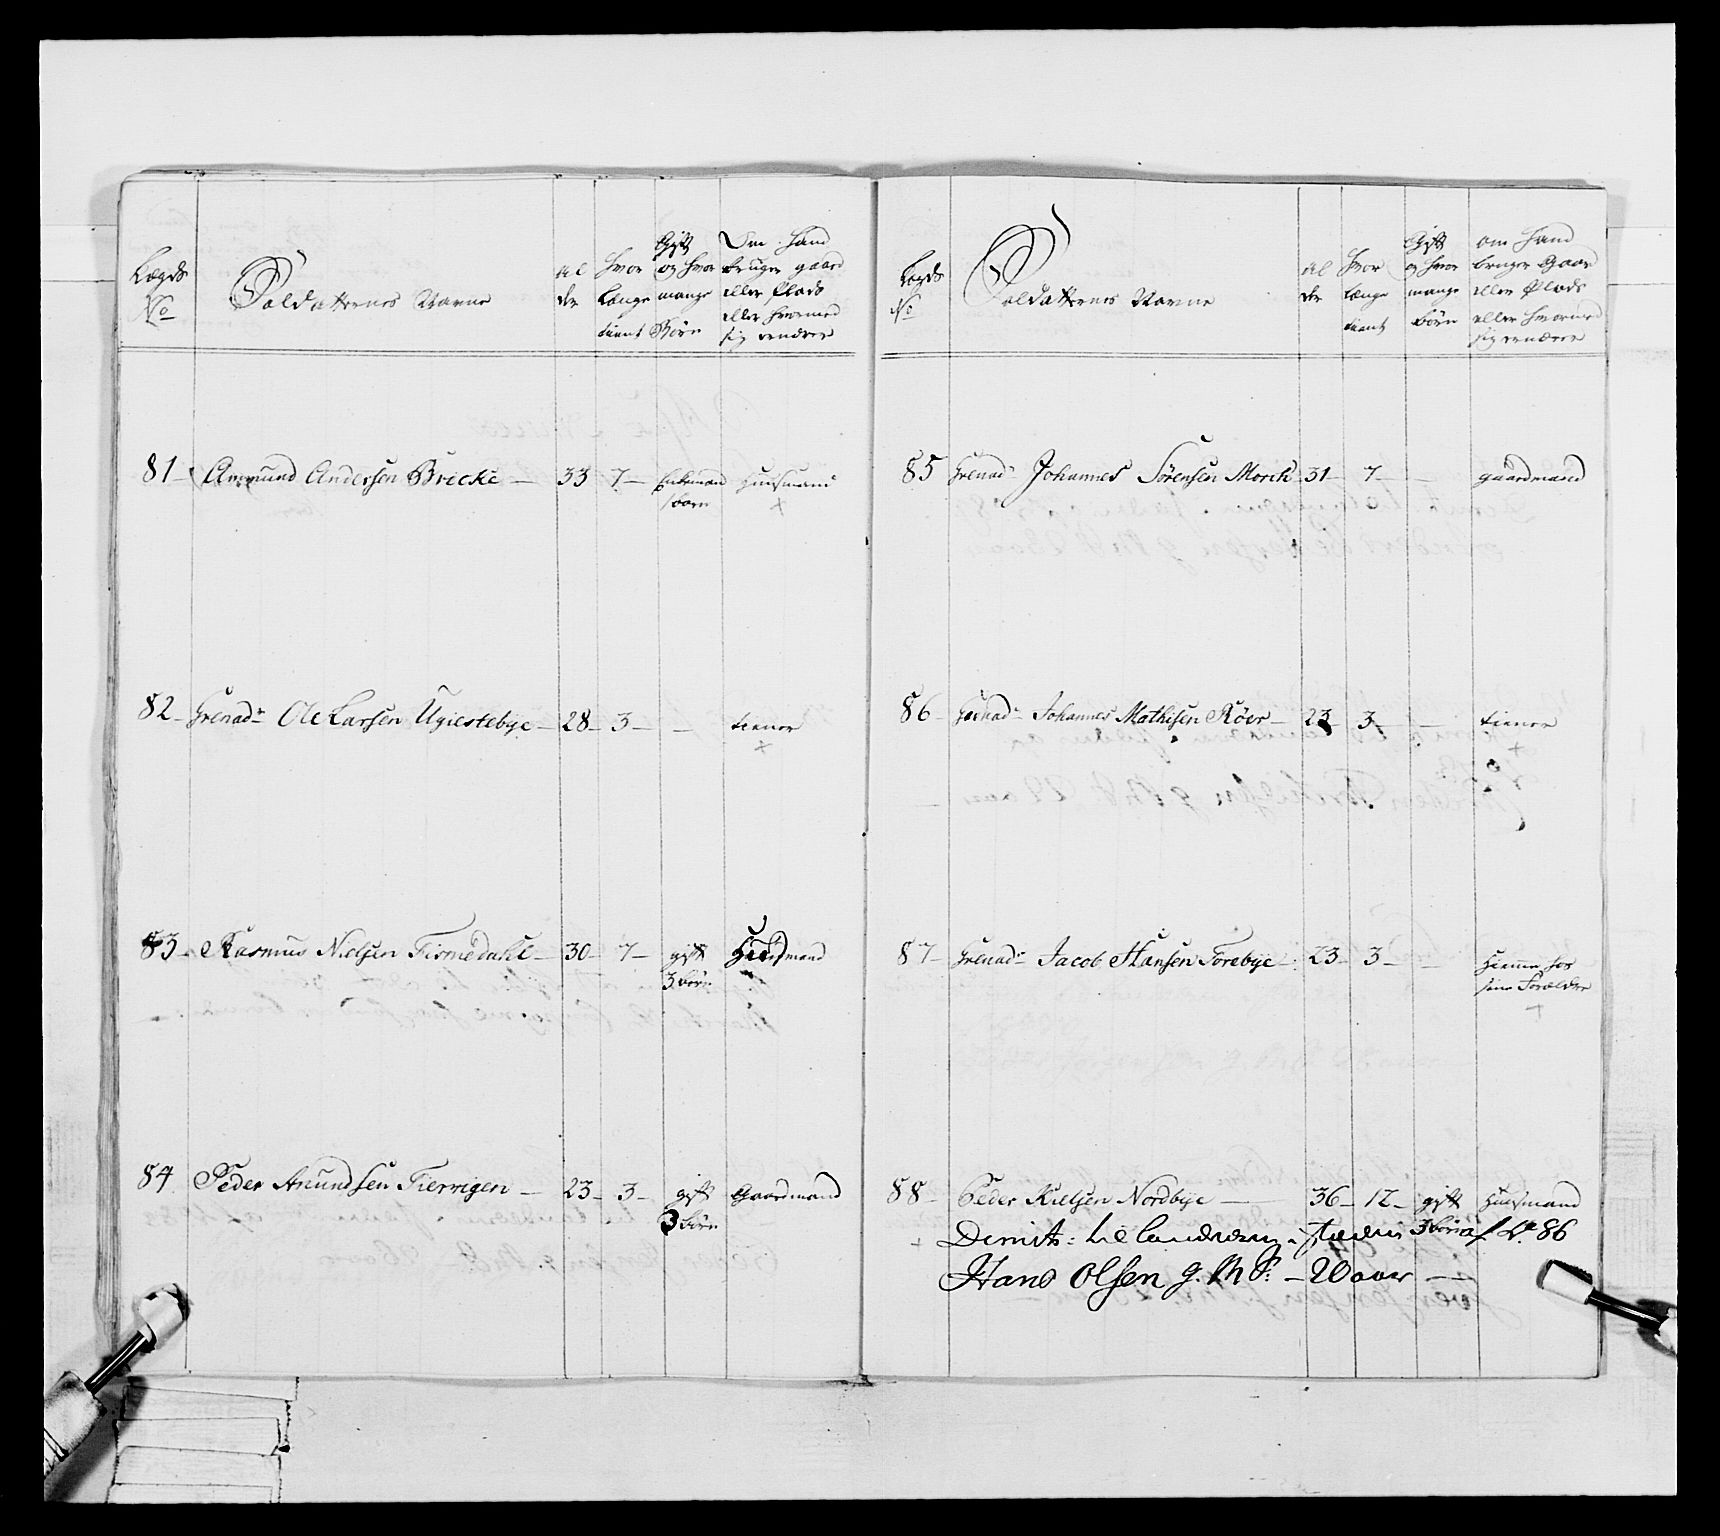 Lægds
No
Soldatternes Navne
al
der
hvor
længe
tient
Gift
og hvor
mange
Börn
Om hand
bruger gaard
eller Plads
eller hvormed
sig ernærer
81 - Amund Andersen Bricke - 33 7 - Enkemand Huusmand
1 barn +
82 - Grenadr Ole Larsen Ugiestebye - 28 - 3 - - tiener
+
83 - Rasmus Nielsen - 30 - 7 - gift Huusmand
3 börn
84 Peder Amundsen - 23 - 3 - gift Gaardmand
3 börn
Lægds
No
Soldatternes Navne
al
der
hvor
længe
tient
Gift
og hvor
mange
börn
om hand
bruger Gaard
eller Plads
eller hvormed
sig ernærer
85 Grenadr Johannes Sörensen Morch 31 - 7 - - gaardmand
86 - Grenadr Johannes Mathisen Röer - 23 - 3 - - tiener
+
87 - Grenadr Jacob Hansen Torebye - 23 - 3 - - hiemme hos
sine Forældre
+
88 - Peder Nielsen Nordbye - 36 - 12 - gift Huusmand
3 börn
+ Dimit: til landværn i steden af No 86
Hans Olsen g. M S: - 20 aar -